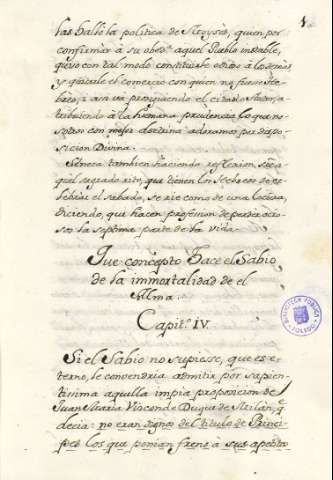 las halló la politica de Moyses, quien por
confirmar à su obed.ª aquel Pueblo instable,
quiso con tal modo constituirle odios à los demas
y quitarle el comercio con quien no fuese He-
breo, i asi va prosiguiendo el citado Autor, a-
tribuiendo à la humana prudencia lo que no-
sotros con mejor doctrina adoramos por dispo-
sicion Divina.
Seneca tambien haciendo reflexion sobre a-
quel sagrado rito, que tienen los Hebreos de ce-
lebrar el sabado, se rie como de una locura,
diciendo, que hacen profesion de perder ocio-
sos la septima parte de la vida.
Que concepto hace el Sabio
de la immortalidad de el
Alma.
Capit.º IV.
Si el Sabio no supiese, que es e-
terno, le convendria admitir por sapien-
tissima aquella impia proposicion de
Juan Maria Visconde Duque de Milan, q.e
decia: no eran signo del titulo de Princi-
pes los que ponian freno à sus apetitos
BIBLIOTECA PUBLICA
TOLEDO